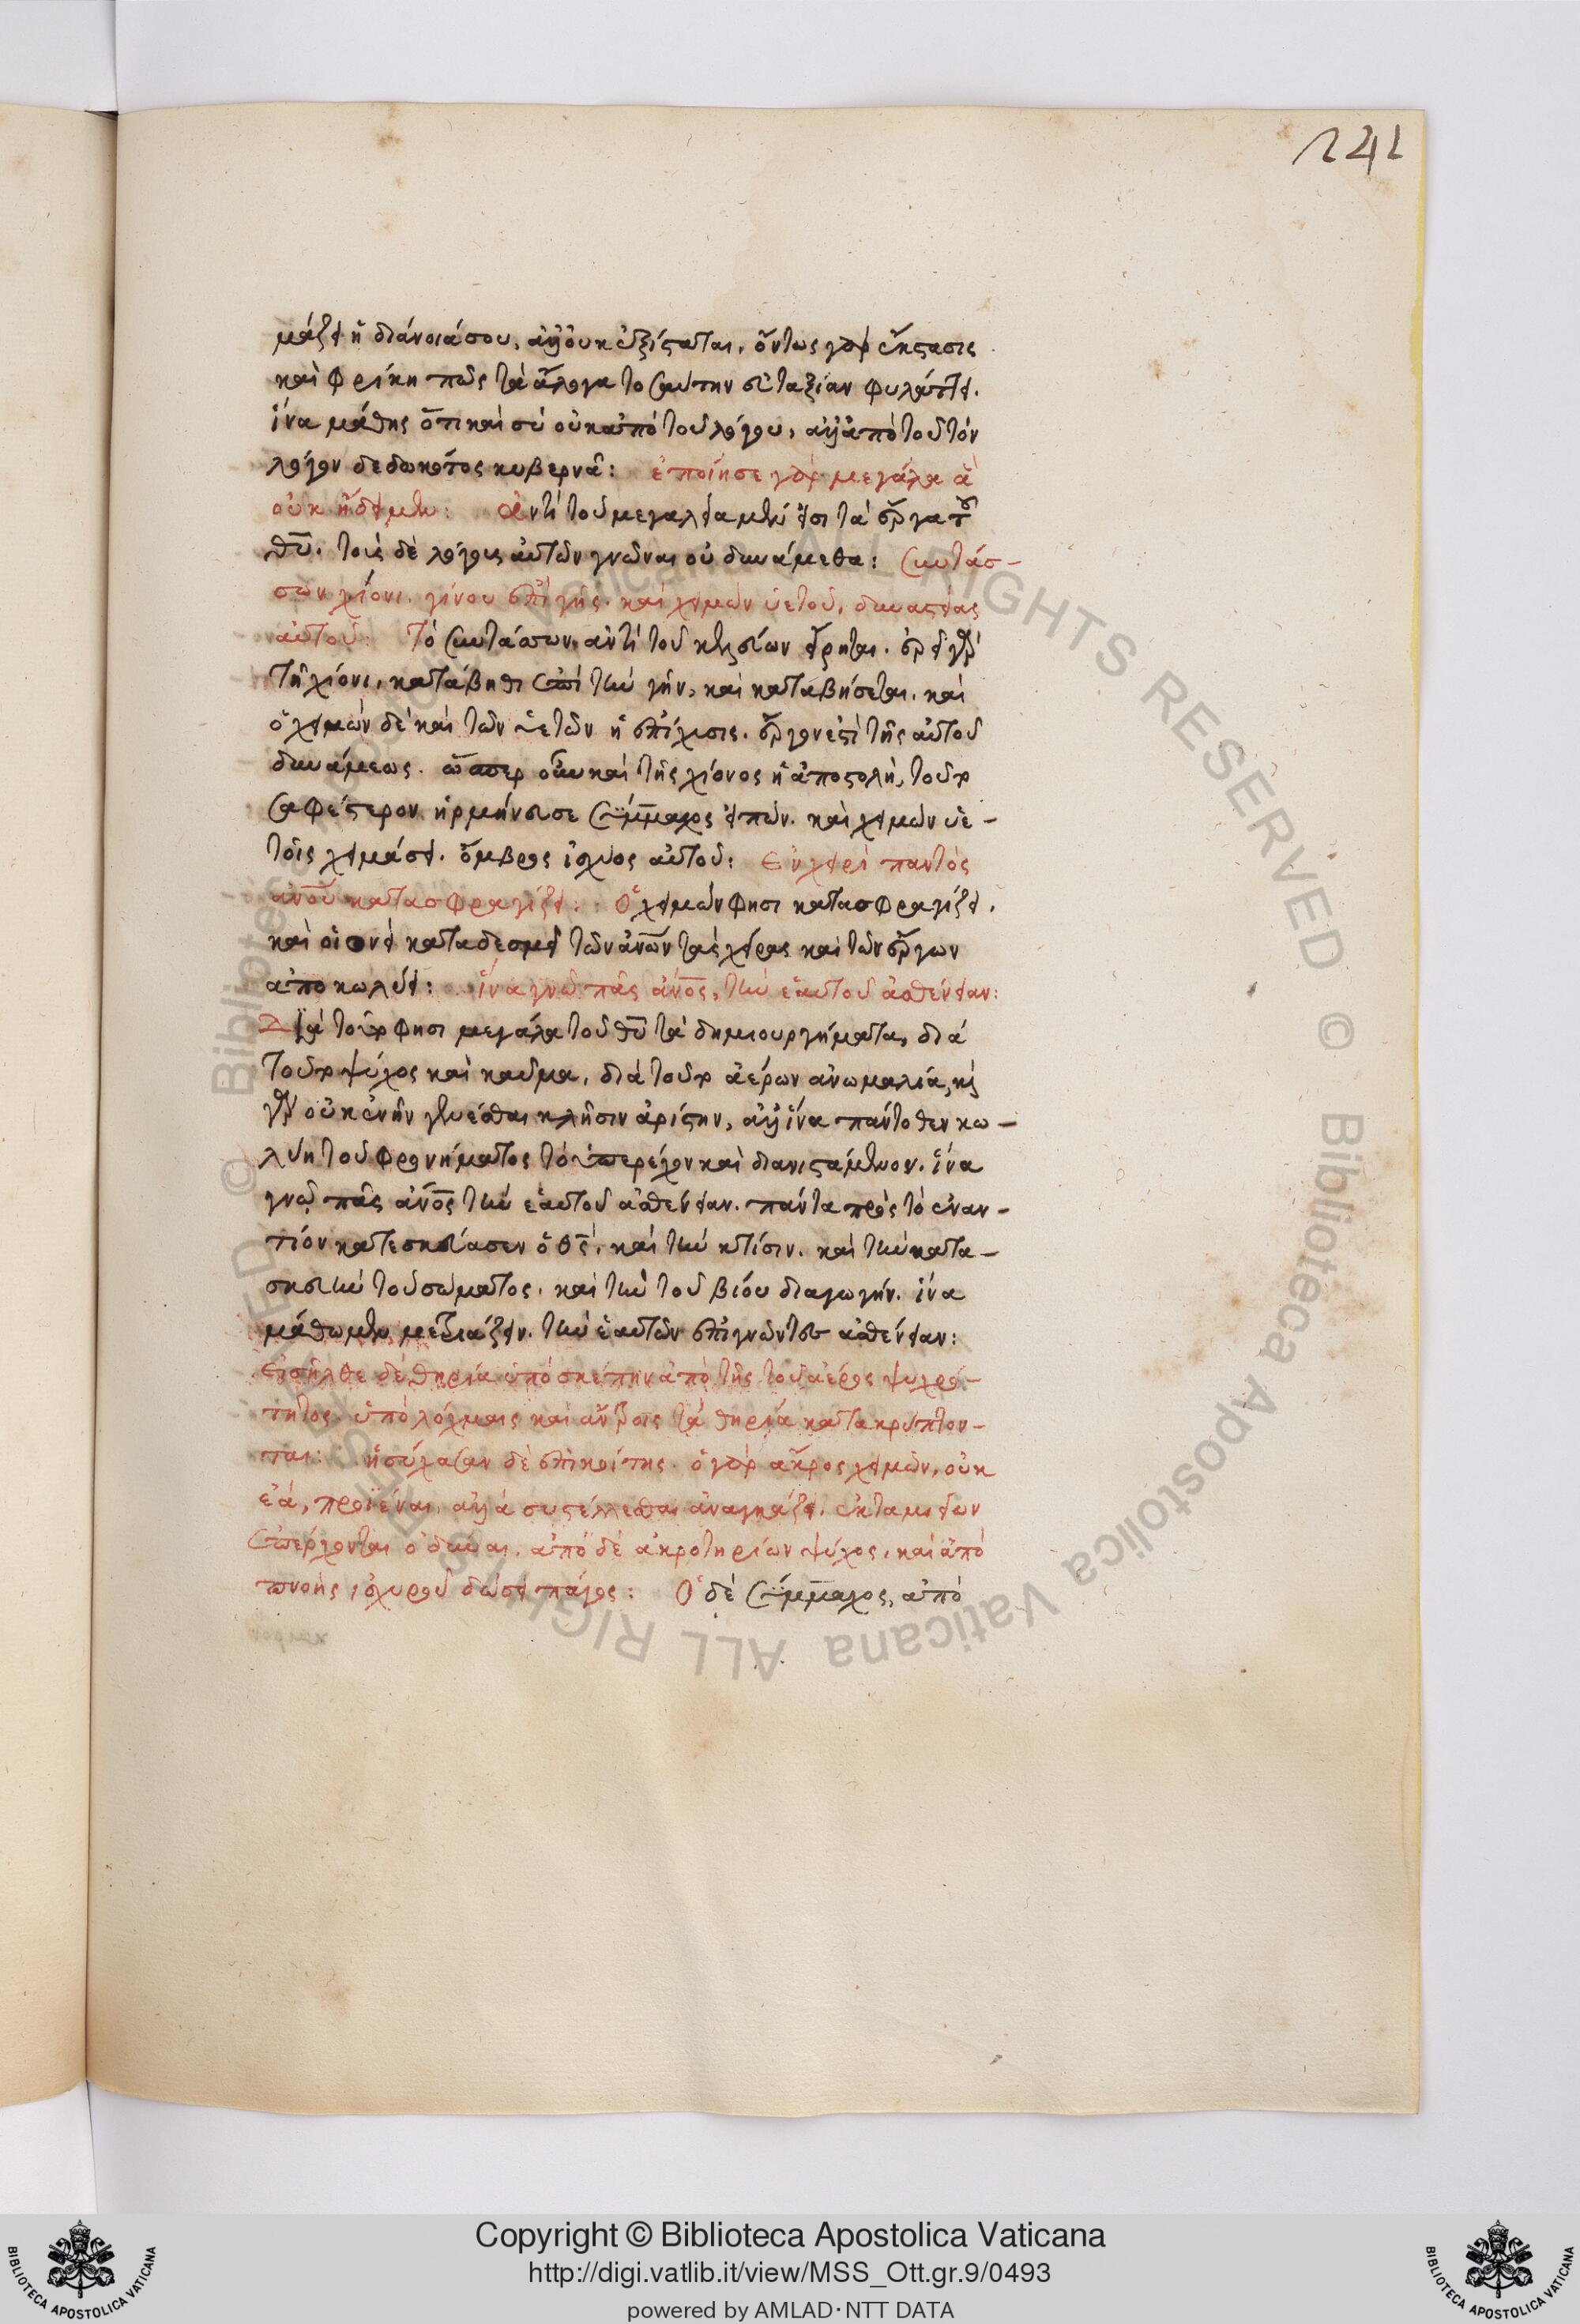 241
μάζει ἡ διάνοιά σου, ἀλλ' οὐκ ἐξίσταται. ὄντως γὰρ ἔκστασις
καὶ φρίκη πῶς τὰ ἄλογα τοσαύτην εὐταξίαν φυλάττει.
ἵνα μάθῃς ὅτι καὶ σὺ οὐκ ἀπὸ τοῦ λόγου, ἀλλ' ἀπὸ τοῦ τὸν
λόγον δεδωκότος κυβερνᾶ: ἐποίησε γὰρ μεγάλα ἃ
οὐκ ᾔδειμεν: Ἀντὶ τοῦ μεγαλεῖα μέν εἰσι τὰ ἔργα τοῦ
θυ. τοὺς δὲ λόγους αὐτῶν γνῶναι οὐ δυνάμεθα: Συντάσ-
σων χιόνι. γίνου ἐπὶ γῆς. καὶ χειμὼν ὑετοῦ, δυναστείας
αὐτοῦ: Τὸ συντάσσων, ἀντὶ τοῦ κελεύων εἴρηται. ἐρεῖ γὰρ
τῇ χιόνι, κατάβηθι ἐπὶ τὴν γῆν, καὶ καταβήσεται. καὶ
ὁ χειμὼν δὲ καὶ τῶν ὑετῶν ἡ ἐπίχυσις. ἔργον ἐστὶ τῆς αὐτοῦ
δυνάμεως. ὥσπερ οὖν καὶ τῆς χιόνος ἡ ἀποστολὴ, τοῦτο
σαφέστερον ἡρμήνευσε Σύμμαχος εἰπών. καὶ χειμὼν ὑε-
τοῖς χειμάσει. ὄμβρος ἰσχύος αὐτοῦ: Ἐν χειρὶ παντὸς
ἀνου κατασφραγίζει: Ὁ χειμών φησι κατασφραγίζει.
καὶ οἱονεὶ καταδεσμεῖ τῶν ἀνων τὰς χεῖρας καὶ τῶν ἔργων
ἀποκωλύει: ἵνα γνῷ πᾶς ἀνος, τὴν ἑαυτοῦ ἀσθένειαν:
Διὰ τοῦτο φησι μεγάλα τοῦ θυ τὰ δημιουργήματα, διὰ
τοῦτο ψύχος καὶ καῦμα, διὰ τοῦτο ἀέρων ἀνωμαλία,
οὐκ ἐνῆν γενέσθαι ἀρίστην, ἀλλ' ἵνα πάντοθεν κω-
λύῃ τοῦ φρονήματος τὸ ὑπερέχον καὶ διανιστάμενον. ἵνα
γνῷ πᾶς ἀνος τὴν ἑαυτοῦ ἀσθένειαν. πάντα πρὸς τὸ ἐναν-
τίον κατεσκεύασεν ὁ θς, καὶ τὴν κτίσιν. καὶ τὴν κατα-
σκευὴν τοῦ σώματος. καὶ τὴν τοῦ βίου διαγωγήν. ἵνα
μάθωμεν μετριάζειν. τὴν ἑαυτῶν ἐπιγνόντες ἀσθένειαν:
Εἰσῆλθε δὲ θηρία ὑπὸ σκέπην ἀπὸ τῆς τοῦ ἀέρος ψυχρό-
τητος. ὑπὸ λόχμαις καὶ ἄντροις τὰ θηρία κατακρύπτον-
ται: ἡσύχασαν δὲ ἐπὶ κοίτης. ὁ γὰρ ἄκρος χειμὼν, οὐκ
ἐᾷ, προϊέναι. ἀλλὰ συστέλλεσθαι ἀναγκάζει. ἐκ ταμιείων
ἐπέρχονται ὀδύναι. ἀπὸ δὲ ἀκρωτηρίων ψύχος, καὶ ἀπὸ
πνοῆς ἰσχυροῦ δώσει πάγος: Ὁ δὲ Σύμμαχος, ἀπὸ
Copyright © Biblioteca Apostolica Vaticana
http://digi.vatlib.it/view/MSS_Ott.gr.9/0493
powered by AMLAD·NTT DATA
BIBLIOTECA APOSTOLICA VATICANA
BIBLIOTECA APOSTOLICA VATICANA
© Biblioteca Apostolica Vaticana ALL RIGHTS RESERVED © Biblioteca Apostolica Vaticana ALL RIGHTS RESERVED